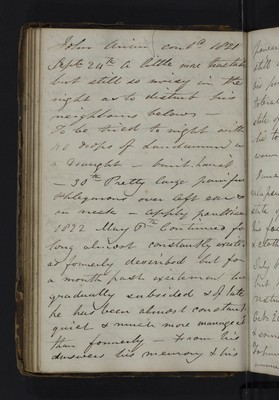 John cont^d 1821
Sept 24th A little more tractable
but still so noisy in the
night as to disturb his
neighbours below —
To be tried to night with
drops of Laudanum in
a draught —
— 30th Pretty large
Phlegmonous over left ear &
on neck — apply poultice
1822 May Continued for
long almost constantly excited
as formerly described but for
a month past excitement has
gradually subsided & of late
he has been almost constantly
quiet & much more manageable
than formerly — From his
answers his memory & his